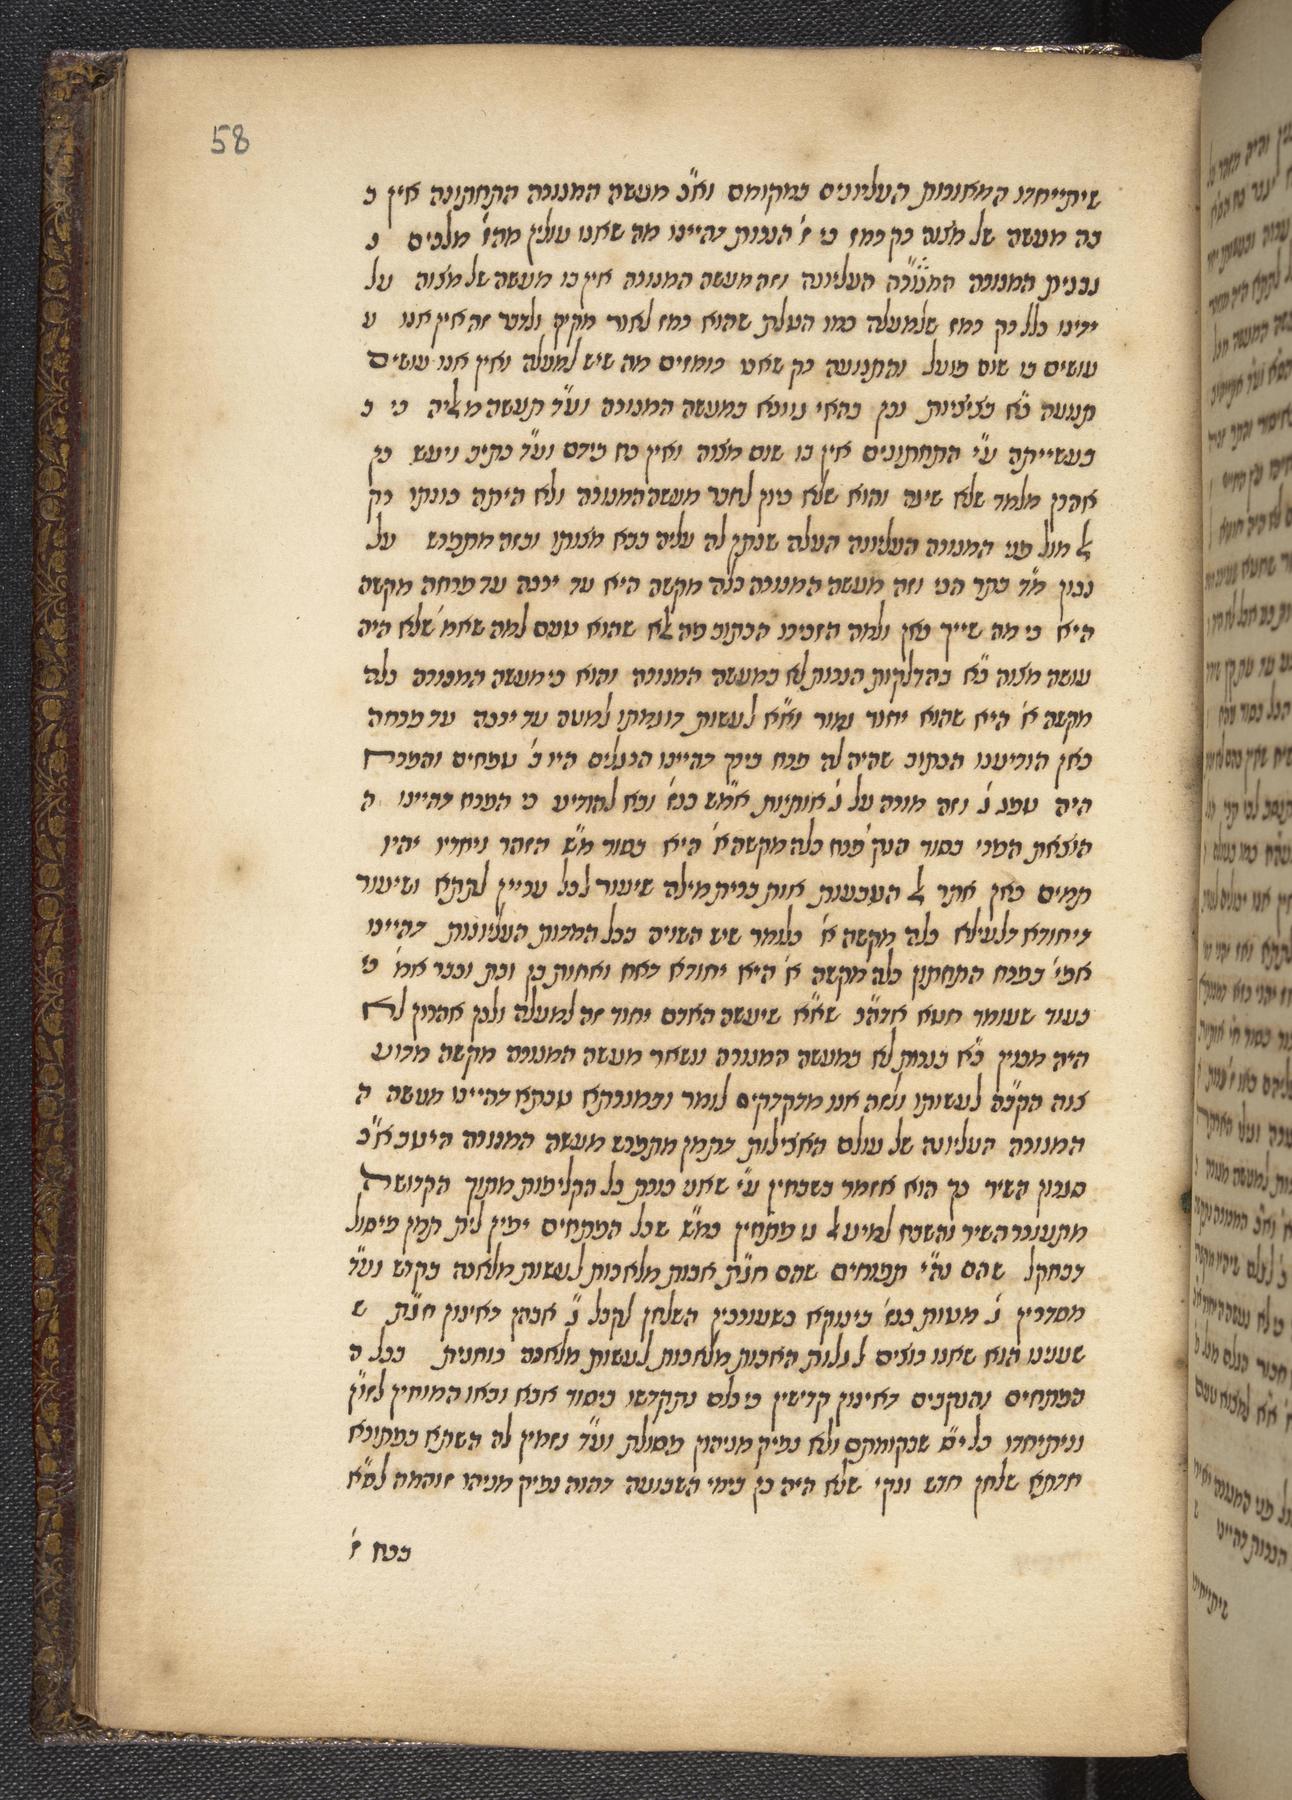 58
שיתייחדו המאורות העליונים במקומם וא"כ מעשה המנורה התחתונה אין כ
בה מעשה של מצוה רק רמז כי ז' הנרות דהיינו מה שאנו עולין מהז' מלכים נ
נבנית המנורה העליונה וזה מעשה המנורה אין בו מעשה של מצוה על
ידינו כלל רק רמז שלמעלה כמו העלת שהוא רמז לאור מקיף ולדבר זה אין אנו ע
עושים בו שום פועל והתנועה רק שאנו רומזים מה שיש למעלה ואין אנו עושים
תנועה כ"א בציצית וכן בהאי גוונא במעשה המנורה וע"ד תעשה מאליה כי כ
בעשייתה ע"י התחתונים אין בו שום מצוה ואין כח בידם וע"ד כתיב ויעש כן
אהרן מלמד שלא שינה והוא שלא כוון לחבר מעשה המנורה ולא היתה כונתו רק
אל מול פני המנורה העליונה העלה שנתן לה עליה כבא מצותו ובזה מתפרש על
נכון מ"ד בתר הכי וזה מעשה המנורה כלה מקשה היא עד ירכה עד פרחה מקשה
היא כי מה שייך כאן ולמה הזכירו הכתוב פה אלא שהוא טעם למה שאמ' שלא היה
עושה מצוה כ"א בהדלקות הנרות לא במעשה המנורה והוא כי מעשה המנורה כלה
מקשה א' היא שהוא יחוד גמור וא"א לעשות דוגמתו למטה עד ירכה עד פרחה
כאן הודיענו הכתוב שהיה לה פרח כירך דהיינו הרגלים היו ג' טפחים והפרח
היה טפג ג' וזה מורה על ג' אותיות אמ"ש כנז' ובא להודיע כי הפרח דהיינו ה
הוצאת הפרי בסוד הנק' פרח כלה מקשה א' היא בסוד מ"ש הזהר ויחדיו יהיו
תמים כאן אתר אל הטבעות אות ברית מילה שיעור לכל עריין לתתא ושיעור
דיחודא דלעילא כלה מקשה א' כלומר שיש השויה בכל המדות העליונות דהיינו
אפי' בפרח התחתון כלה מקשה א' היא יחודא דאח ואחות בן ובת וכבר אמ' כי
בעוד שעומד חטא אדה"ר שא"א שיעשה האדם יחוד זה למעלה ולכן אהרון לא
היה מכוין כ"א בנרות לא במעשה המנורה ונשאר מעשה המנורה מקשה מדוע
צוה הקב"ה לעשותו ולזה אנו מדקדקים לומר ובמנרתא טבתא דהיינו מעשה ה
המנורה העליונה של עולם האצילות דתמן מתפרש מעשה המנורה היטב א"כ
סגנון השיר כך הוא אזמר בשבחין ע"י שאנו כורת כל הקליפות מתוך הקדושה
מתעורר השיר והשבח למיעל גו פתחין כמ"ש שכל הפתחים ימין לית תמן פיסול
דבחקל שהם נה"י תפוחים שהם חג"ת אבות מלאכות לעשות מלאכה בקדש וע"ד
מסדרין ג' מטות כנז' בינוקא כשעורכין השלחן לקבל ג' אבהן דאינון חג"ת ש
שענינו הוא שאנו רוצים לגלות האבות מלאכות לעשות מלאכה רוחנית בכל ה
הפתחים והנקבים דאינון קדישין כי כלם נתקדשו ביסוד אבא ובאו המוחין לזו"ן
וניתיחדו כל י"ם שבקומתם ולא נפיק מניהון פסולת וע"ד נזמין לה השתא בפתורא
חדתא שלחן חדש ונקי שלא היה כן בימי השבועה דהוה נפיק מניהו זוהמה לס"א
בכח ז'